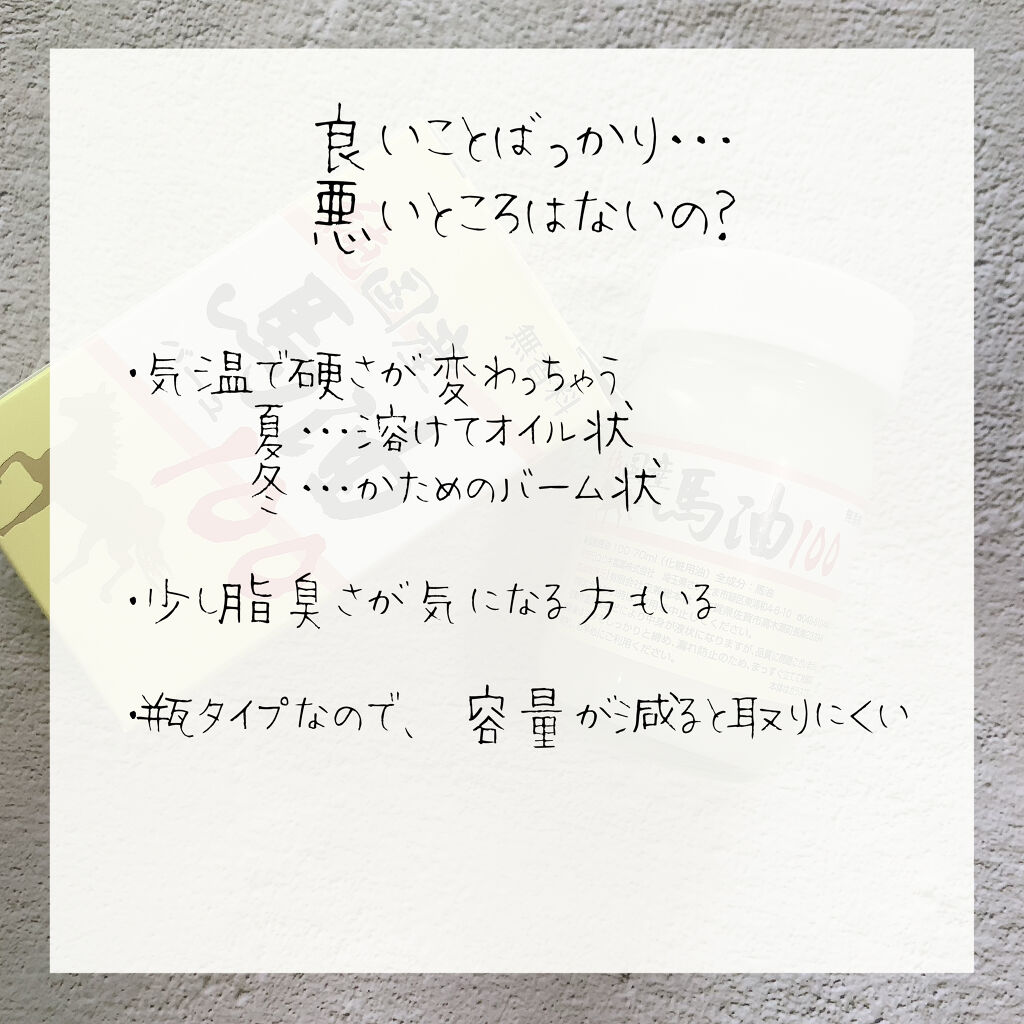 良いことばっかり・・・
悪いところはないの?
・気温で硬さが変わっちゃう、
夏・・・溶けてオイル状
冬・・・かためのバーム状
・少し脂臭さが気になる方もいる
・瓶タイプなので、容量が減ると取りにくい
純国産
馬油
100
無香料
馬油100